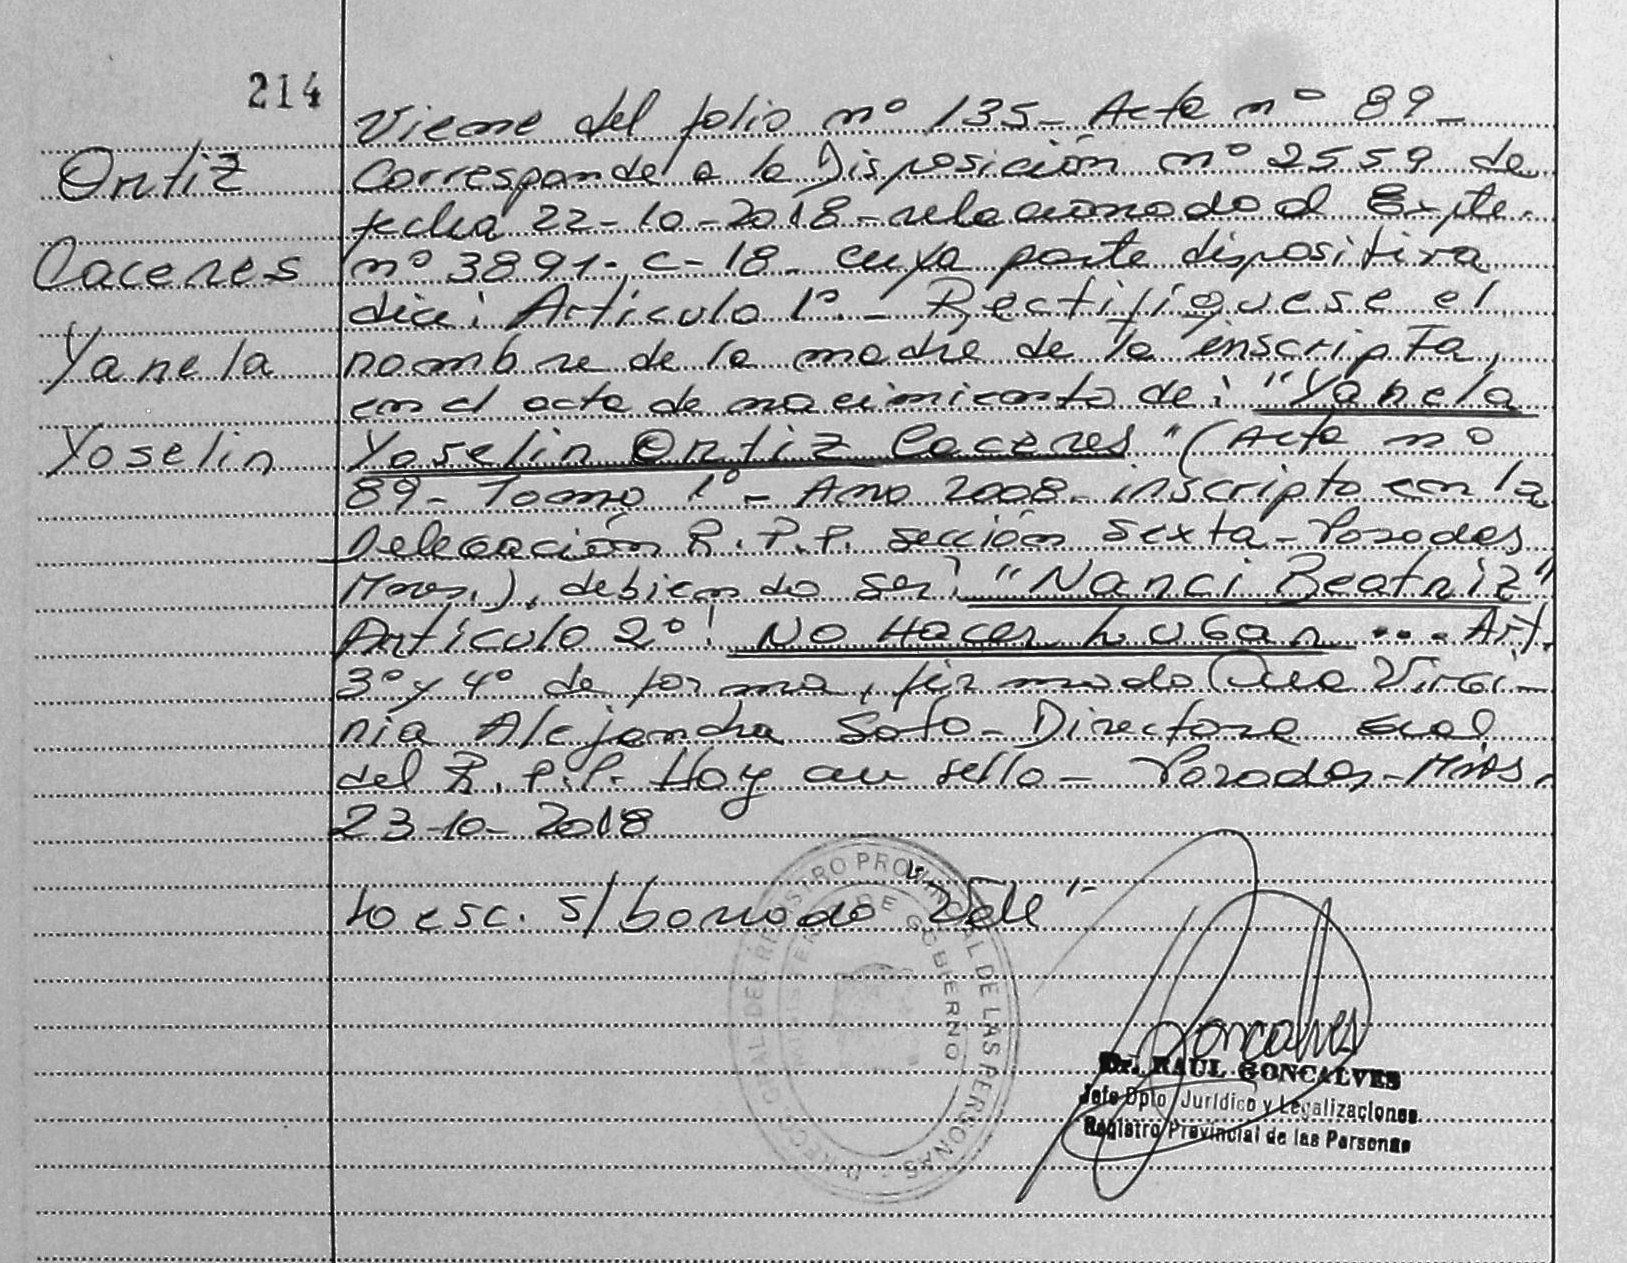 214
Ortiz
Caceres
Yanela
Yoselin
Viene del folio nº 135_ Acta nº 89_
Corresponde a la Disposición nº 2559 de
fecha 22-10-2018_relacionado al Expte.
nº 3891-C-18_ cuya parte dispositiva
dice: Artículo 1º._ Rectifíquese el
nombre de la madre de la inscripta,
en el acta de nacimiento de: "Yanela
Yoselin Ortiz Caceres" (Acta nº
89- Tomo 1º_ Año 2008_inscripto en la
Delegación R.P.P. sección Sexta_Posadas
Mnes.), debiendo ser: "Nanci Beatriz"
Artículo 2º: No Hacer Lugar .... Art.
3º y 4º de forma, firmado Dra Virgi-
nia Alejandra Soto_Directora Gral
del R.P.P. Hoy un sello_ Posadas_Mnes.
23-10-2018
Lo esc. s/borrado "Vale"-
REGISTRO PROVINCIAL DE LAS PERSONAS
DE GOBIERNO
Goncalves
Dr. RAUL GONCALVES
Jefe Dpto. Jurídico y Legalizaciones
Registro Provincial de las Personas